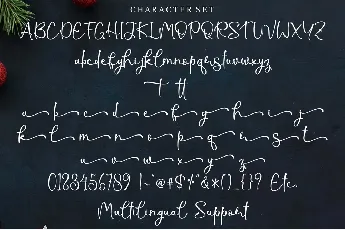 CHARACTER SET
ABCDEFGHIJKLMNOPQRSTUVWXYZ
abcdefghijklmnopqrstuvwxyz
a b c d e f g h i j
k l m n o p q r s t
u v w x y z
0123456789 Etc
Multilingual Support